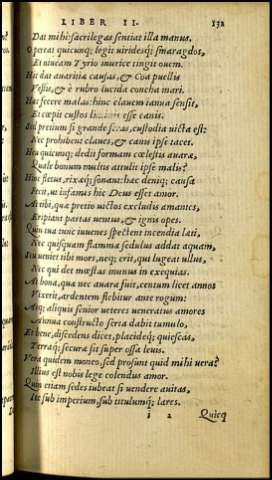 LIBER II. 132
Dat mihi: sacrilegas sentiat illa manus.
O pereat quicunq; legit viridesq; smaragdos,
Et niueam Tyrio murice tingit ouem.
Hic dat auaritiæ causas, & Coa puellis
Vestis, & è rubro lucida concha mari.
Hæc fecere malas: hinc clauem ianua sensit,
Et cœpit custos liminis esse canis.
Sed pretium si grande feras, custodia uicta est:
Nec prohibent claues, & canis ipse tacet.
Heu quicunq; dedit formam cœlestis auaræ,
Quale bonum multis attulit ipse malis?
Hinc fletus, rixæq; sonant: hæc deniq; causa
Fecit, ut infamis hic Deus esset amor.
At tibi, quæ pretio uictos excludis amantes,
Eripiant partas uentus, & ignis opes.
Quin tua tunc iuuenes spectent incendia læti,
Nec quisquam flammæ sedulus addat aquam,
Seu ueniet tibi mors, neq; erit, qui lugeat ullus,
Nec qui det mœstas munus in exequias.
At bona, quæ nec auara fuit, centum licet annos
Vixerit, ardentem flebitur ante rogum:
Atq; aliquis senior ueteres ueneratus amores
Annua constructo serta dabit tumulo,
Et bene, discedens dicet, placideq; quiescas,
Terraq; securæ sit super ossa leuis.
Vera quidem moneo, sed prosunt quid mihi uera?
Illius est nobis lege colendus amor.
Quin etiam sedes iubeat si uendere auitas,
Ite sub imperium, sub titulumq; lares.
i 2 Quicq